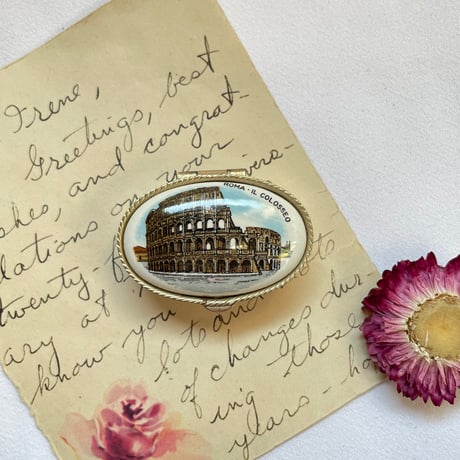 Irene,
Greetings, best
shes, and congrat-
lations on your
twenty-f vers-
ary at
know you
lot and
of changes dur-
ing those
years - ho
ROMA - IL COLOSSEO